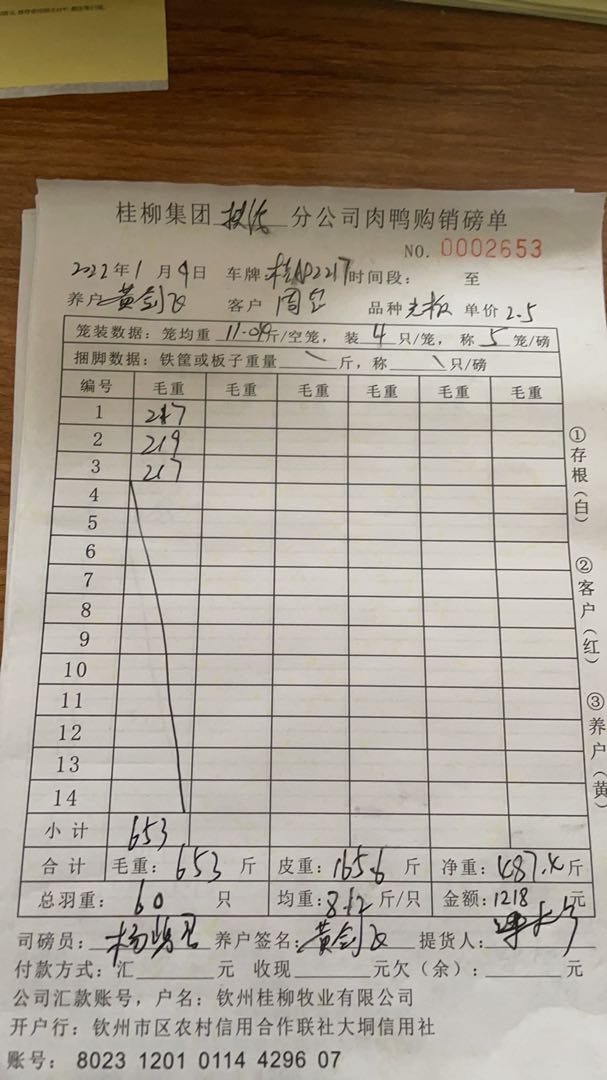 桂柳集团 分公司肉鸭购销磅单
NO. 0002653
2022年1月9日 车牌 桂 2217 时间段： 至
养户 黄剑飞 客户 周 品种 单价 2.5
笼装数据：笼均重 11.04斤/空笼，装 4 只/笼，称 5 笼/磅
捆脚数据：铁筐或板子重量 \ 斤，称 \ 只/磅
编号 毛重 毛重 毛重 毛重 毛重 毛重
1 217
2 219
3 217
4
5
6
7
8
9
10
11
12
13
14
小计 653
合计 毛重：653 斤 皮重：165.6 斤 净重：487.4斤
总羽重：60 只 均重：8.12斤/只 金额：1218 元
司磅员：杨 养户签名：黄剑飞 提货人：
付款方式：汇 元 收现 元欠（余）： 元
公司汇款账号，户名：钦州桂柳牧业有限公司
开户行：钦州市区农村信用合作联社大垌信用社
账号： 8023 1201 0114 4296 07
①存根（白） ②客户（红） ③养户（黄